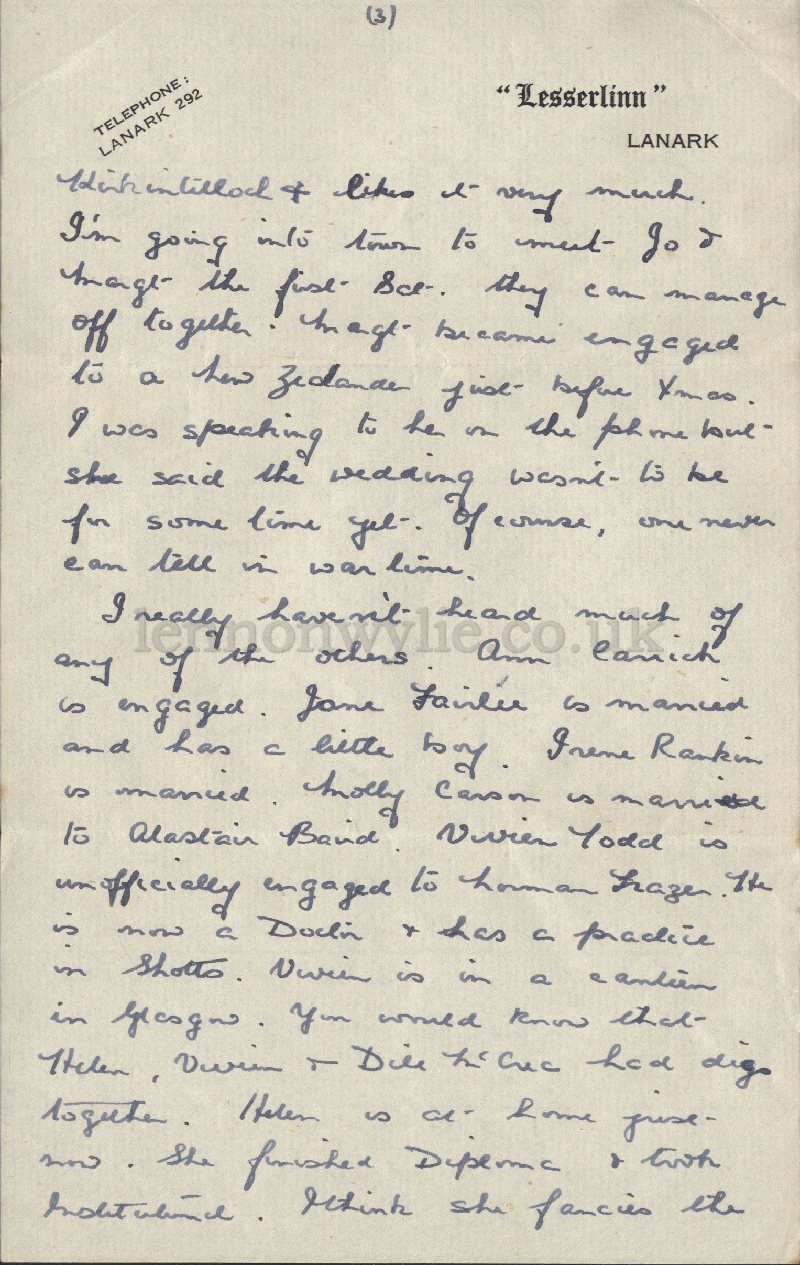 (3)
TELEPHONE:
LANARK 292
"Lesserlinn"
LANARK
Kirkintilloch & likes it very much.
I'm going into town to meet Jo &
Margt the first Sat. they can manage
off together. Margt became engaged
to a New Zealander just before Xmas.
I was speaking to her on the phone but
she said the wedding wasn't to be
for some time yet. Of course, one never
can tell in war time.
I really haven't heard much of
lennonwylie.co.uk
any of the others. Ann Carrick
is engaged. Jane Fairlie is married
and has a little boy. Irene Rankin
is married. Molly Carson is married
to Alastair Baird. Vivien Todd is
unofficially engaged to Norman Frazer. He
is now a Doctor & has a practice
in Shotts. Vivien is in a canteen
in Glasgow. You would know that
Helen, Vivien & Dile McCrea had digs
together. Helen is at home just
now. She finished Diploma & took
Institutional. I think she fancies the